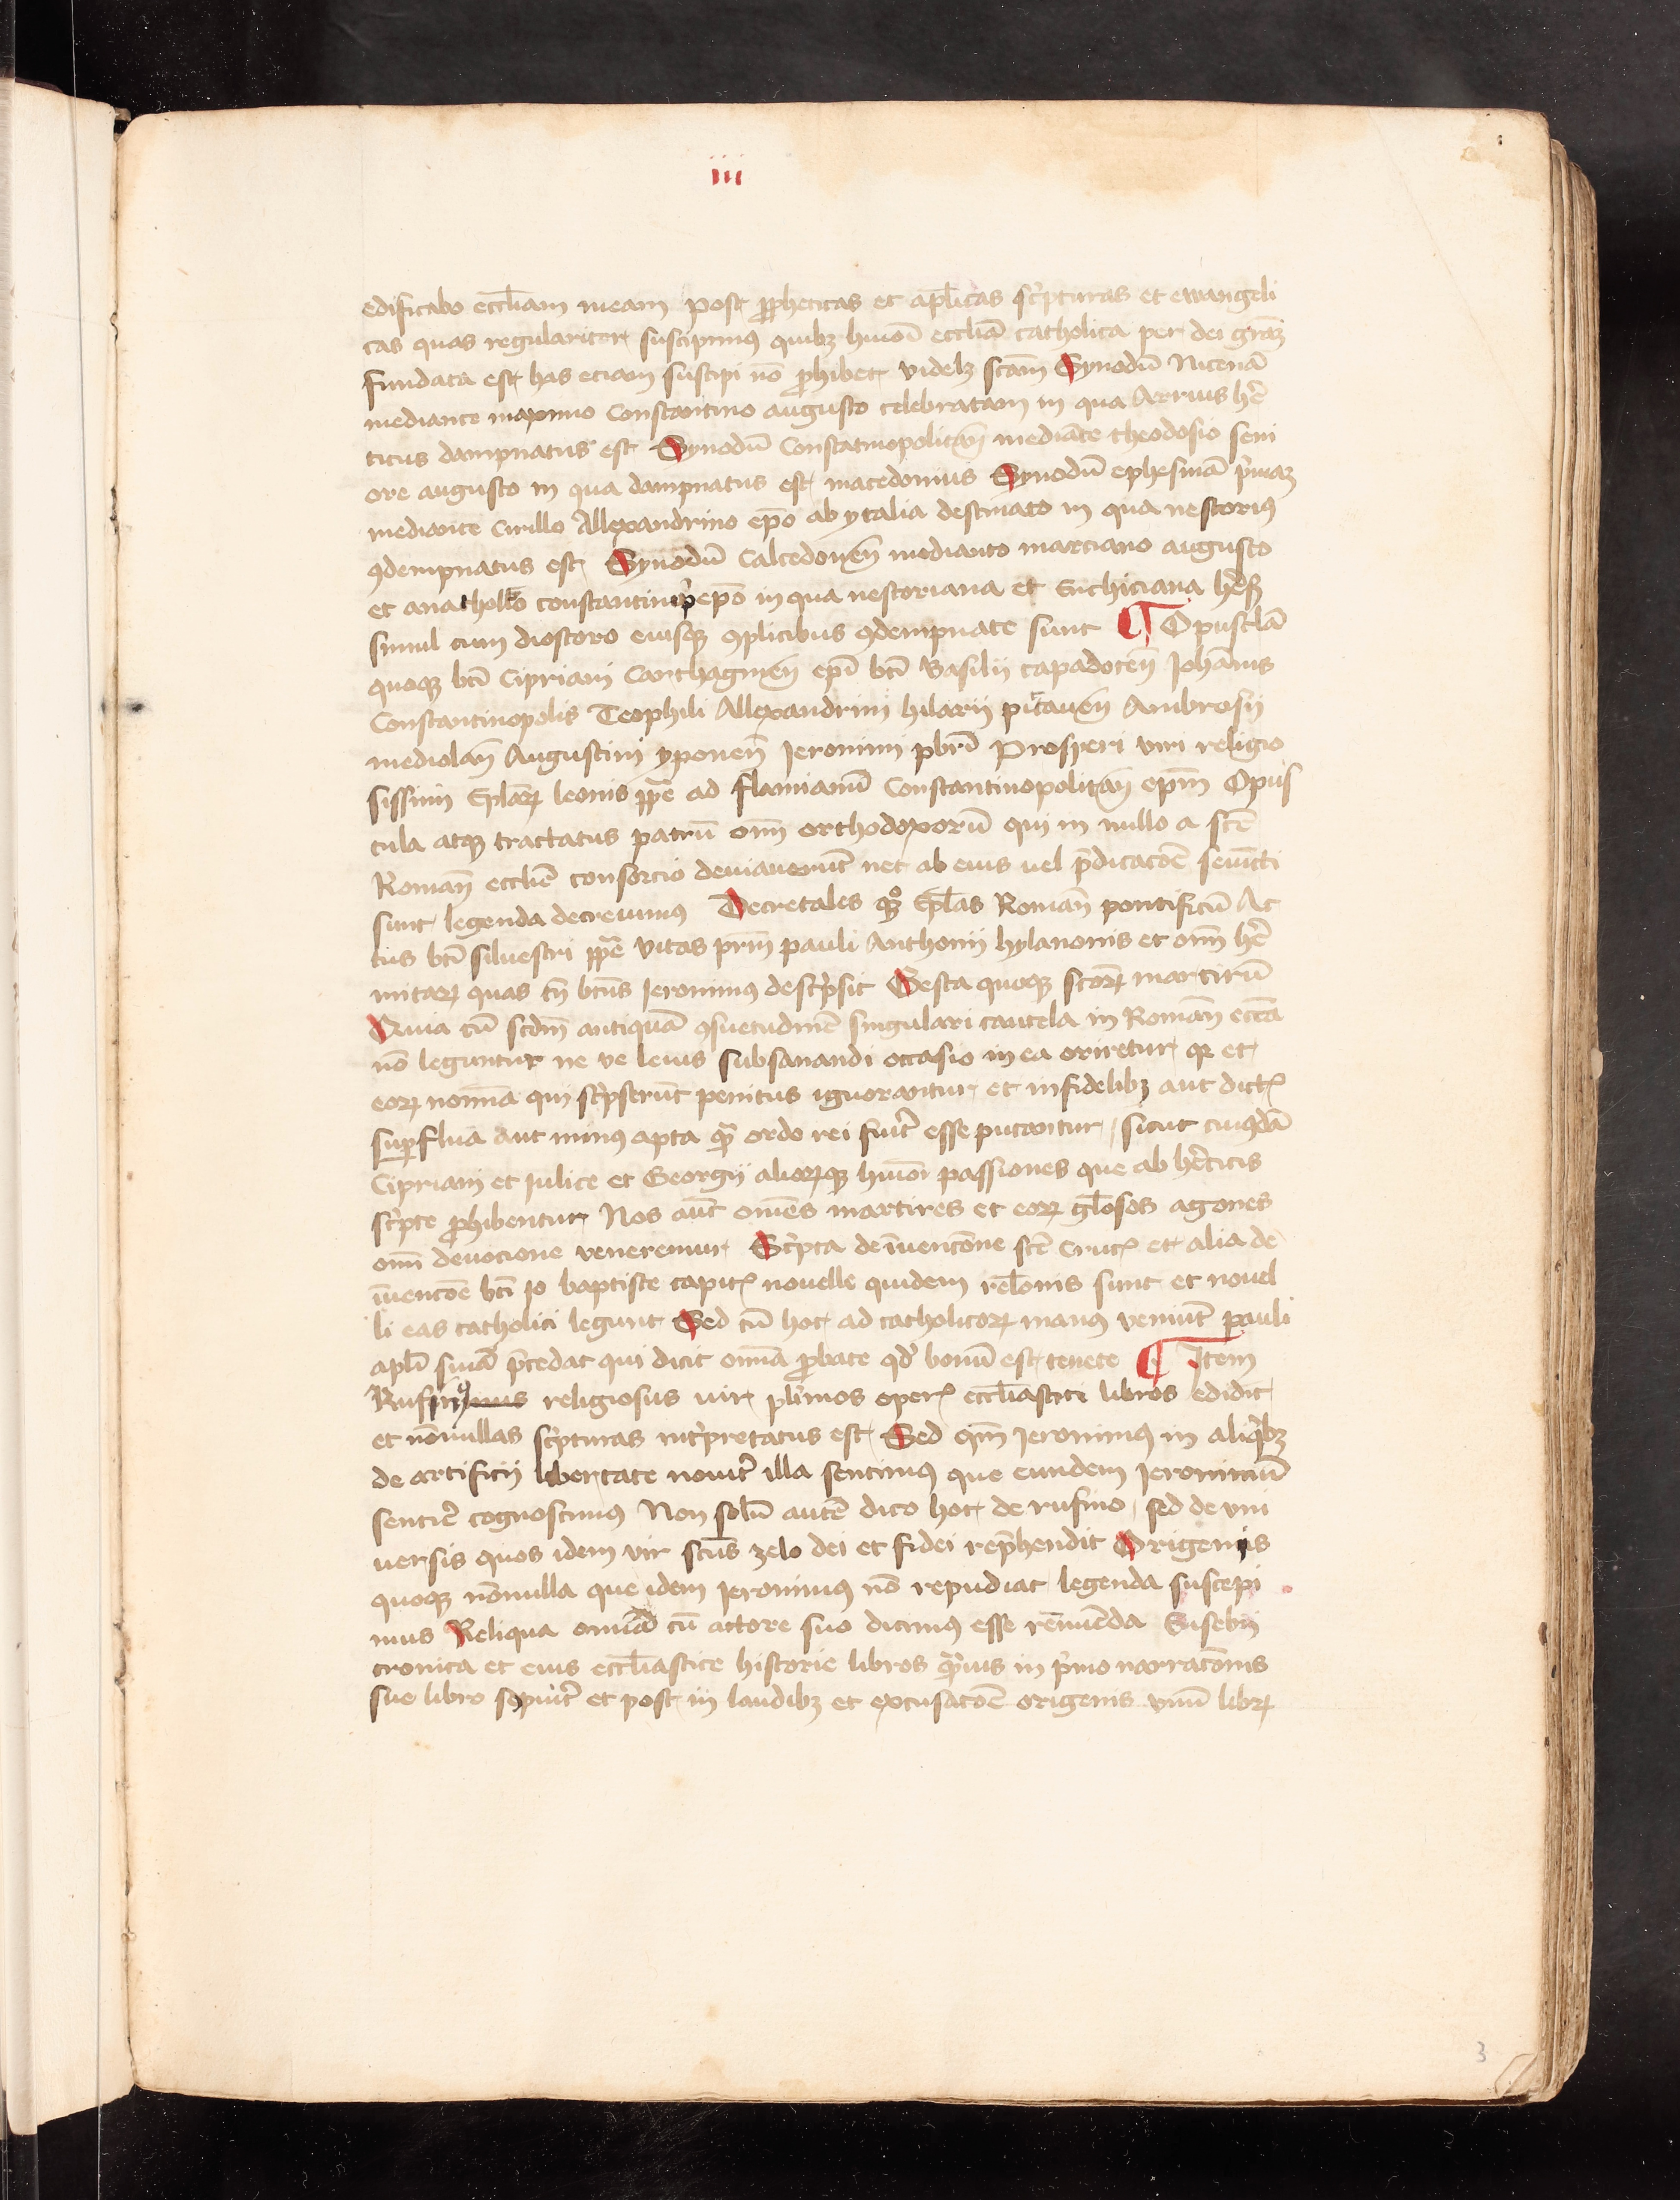 iii
edificabo eccl̄iam meam Post ꝓpheticas et apl̄icas sc̓pturas et ewangeli
cas quas regulariter suscipimus quibꝫ huiōi eccliā catholica per dei grām
fundata est has eciam suscipi nō ꝓhibet videlꝫ scām Synodū Nicenā
mediante maximo Constantino augusto celebratam in qua Arrius he̓
ticus dampnatus est Synodū Constatinopolitan̄ mediāte theodosio seni
ore augusto in qua dampnatus est macedonius Synodū ephesinā p̓maꝫ
mediante Cirillo Allexandrino ep̄o ab ytalia destinato in qua nestoriꝰ
ꝯdempnatus est Synodū Calcedonen̄ mediante marciano augusto
et anatholio constantinop̓ ep̄o in qua nestoriana et Euthiciana he̓s
simul cum dioscoro eiusqꝫ ꝯplicibus ꝯdempnate sunt ¶ Opusclā
quoqꝫ bt̄i Cipriani Carthaginen̄ ep̄i bt̄i Basilii capadocen̄ Johānis
Constantinopolis Teophili Allexandrini hilarii pictauen̄ Ambrosii
mediolan̄ Augustini yponen̄ Jeronimi pbr̄i Prosperi viri religio
sissimi Epl̄aꝝ leonis pp̄e ad flauianū Constantinopolitan̄ epm̄ Opus
cula atqꝫ tractatus patrū om̄ orthodoxorū qui in nullo a sc̄e
Roman̄ eccl̄ie consorcio deuiauerūt nec ab eius vel p̄dicacōe seiūcti
sunt legenda decreuimus Decretales qꝫ epl̄as Roman̄ pontificū Ac
tus bt̄i siluestri pp̄e vitas prm̄ pauli Anthonii hylarionis et om̄ he̓
mitaꝝ quas tn̄ bt̄us Jeronimus desc̓psit Gesta quoqꝫ sc̄oꝝ martirū
Quia cū scdm̄ antiquā ꝯsuetudinē singulari cautela in Roman̄ ecc̄a
nō leguntur ne ve leuis subsanandi occasio in ea oriretur qꝛ et
eoꝝ noīna qui sc̓pserūt penitus ignorantur et infidelibꝫ aut dictꝭ
suꝑflua aut minꝰ apta qꝫ̄ ordo rei fuit̓ esse putantur sicut cuiꝰdā
Cipriani et Julite et Georgii alioꝝqꝫ huiōi passiones que ab he̓ticis
sc̓pte ꝓhibentur Nos aūt omēs martires et eoꝝ gl̄osos agones
om̄i deuocione veneremur Sc̓pta de īuencōne sc̄e Crucꝭ et alia de
īuencōe bt̄i Jo baptiste capitꝭ nouelle quidem relōnis sunt et nouel
li eas catholici legunt Sed cū hoc ad catholicoꝝ manꝰ veniūt pauli
apl̄i sn̄ia p̄cedat qui dicit om̄ia ꝓbate qd̓ bonū est tenete ¶ Item
Rufinꝰ religiosus vir pl̄imos operꝭ eccl̄iastici libros edidit
et nōnullas sc̓pturas int̓pretatus est Sed qm̄ Jeronimꝰ in aliq̓bꝫ
de artificii libertate nouit̓ illa sentimꝰ que eundem Jeronimū
sentire cognoscimꝰ Non solū autē dico hoc de rufino sed de vni
uersis quos idem vir scūs zelo dei et fidei rep̄hendit Origenis
quoqꝫ nōnulla que idem Jeronimus nō repudiat legenda suscepi
mus Reliqua omīa cū actore suo dicimꝰ esse rēnuēda Eusebii
cronica et eius eccl̄iastice historie libros qꝫ̄uis in p̓mo narracōnis
sue libro tepuit̓ et post in laudibꝫ et excusacōe origenis vnū libꝝ
3